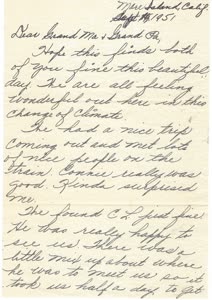 Mare Island, Calif.
Sept 1951
Dear Grand Ma & Grand Pa,
Hope this finds both
of you fine this beautiful
day. We are all feeling
wonderful out here in this
change of climate.
We had a nice trip
coming out and met lots
of nice people on the
train. Connie really was
good. Kinda surprised
me.
We found C L just fine.
He was really happy to
see us. There was a
little mix up about where
he was to meet us so it
took us half a day to get